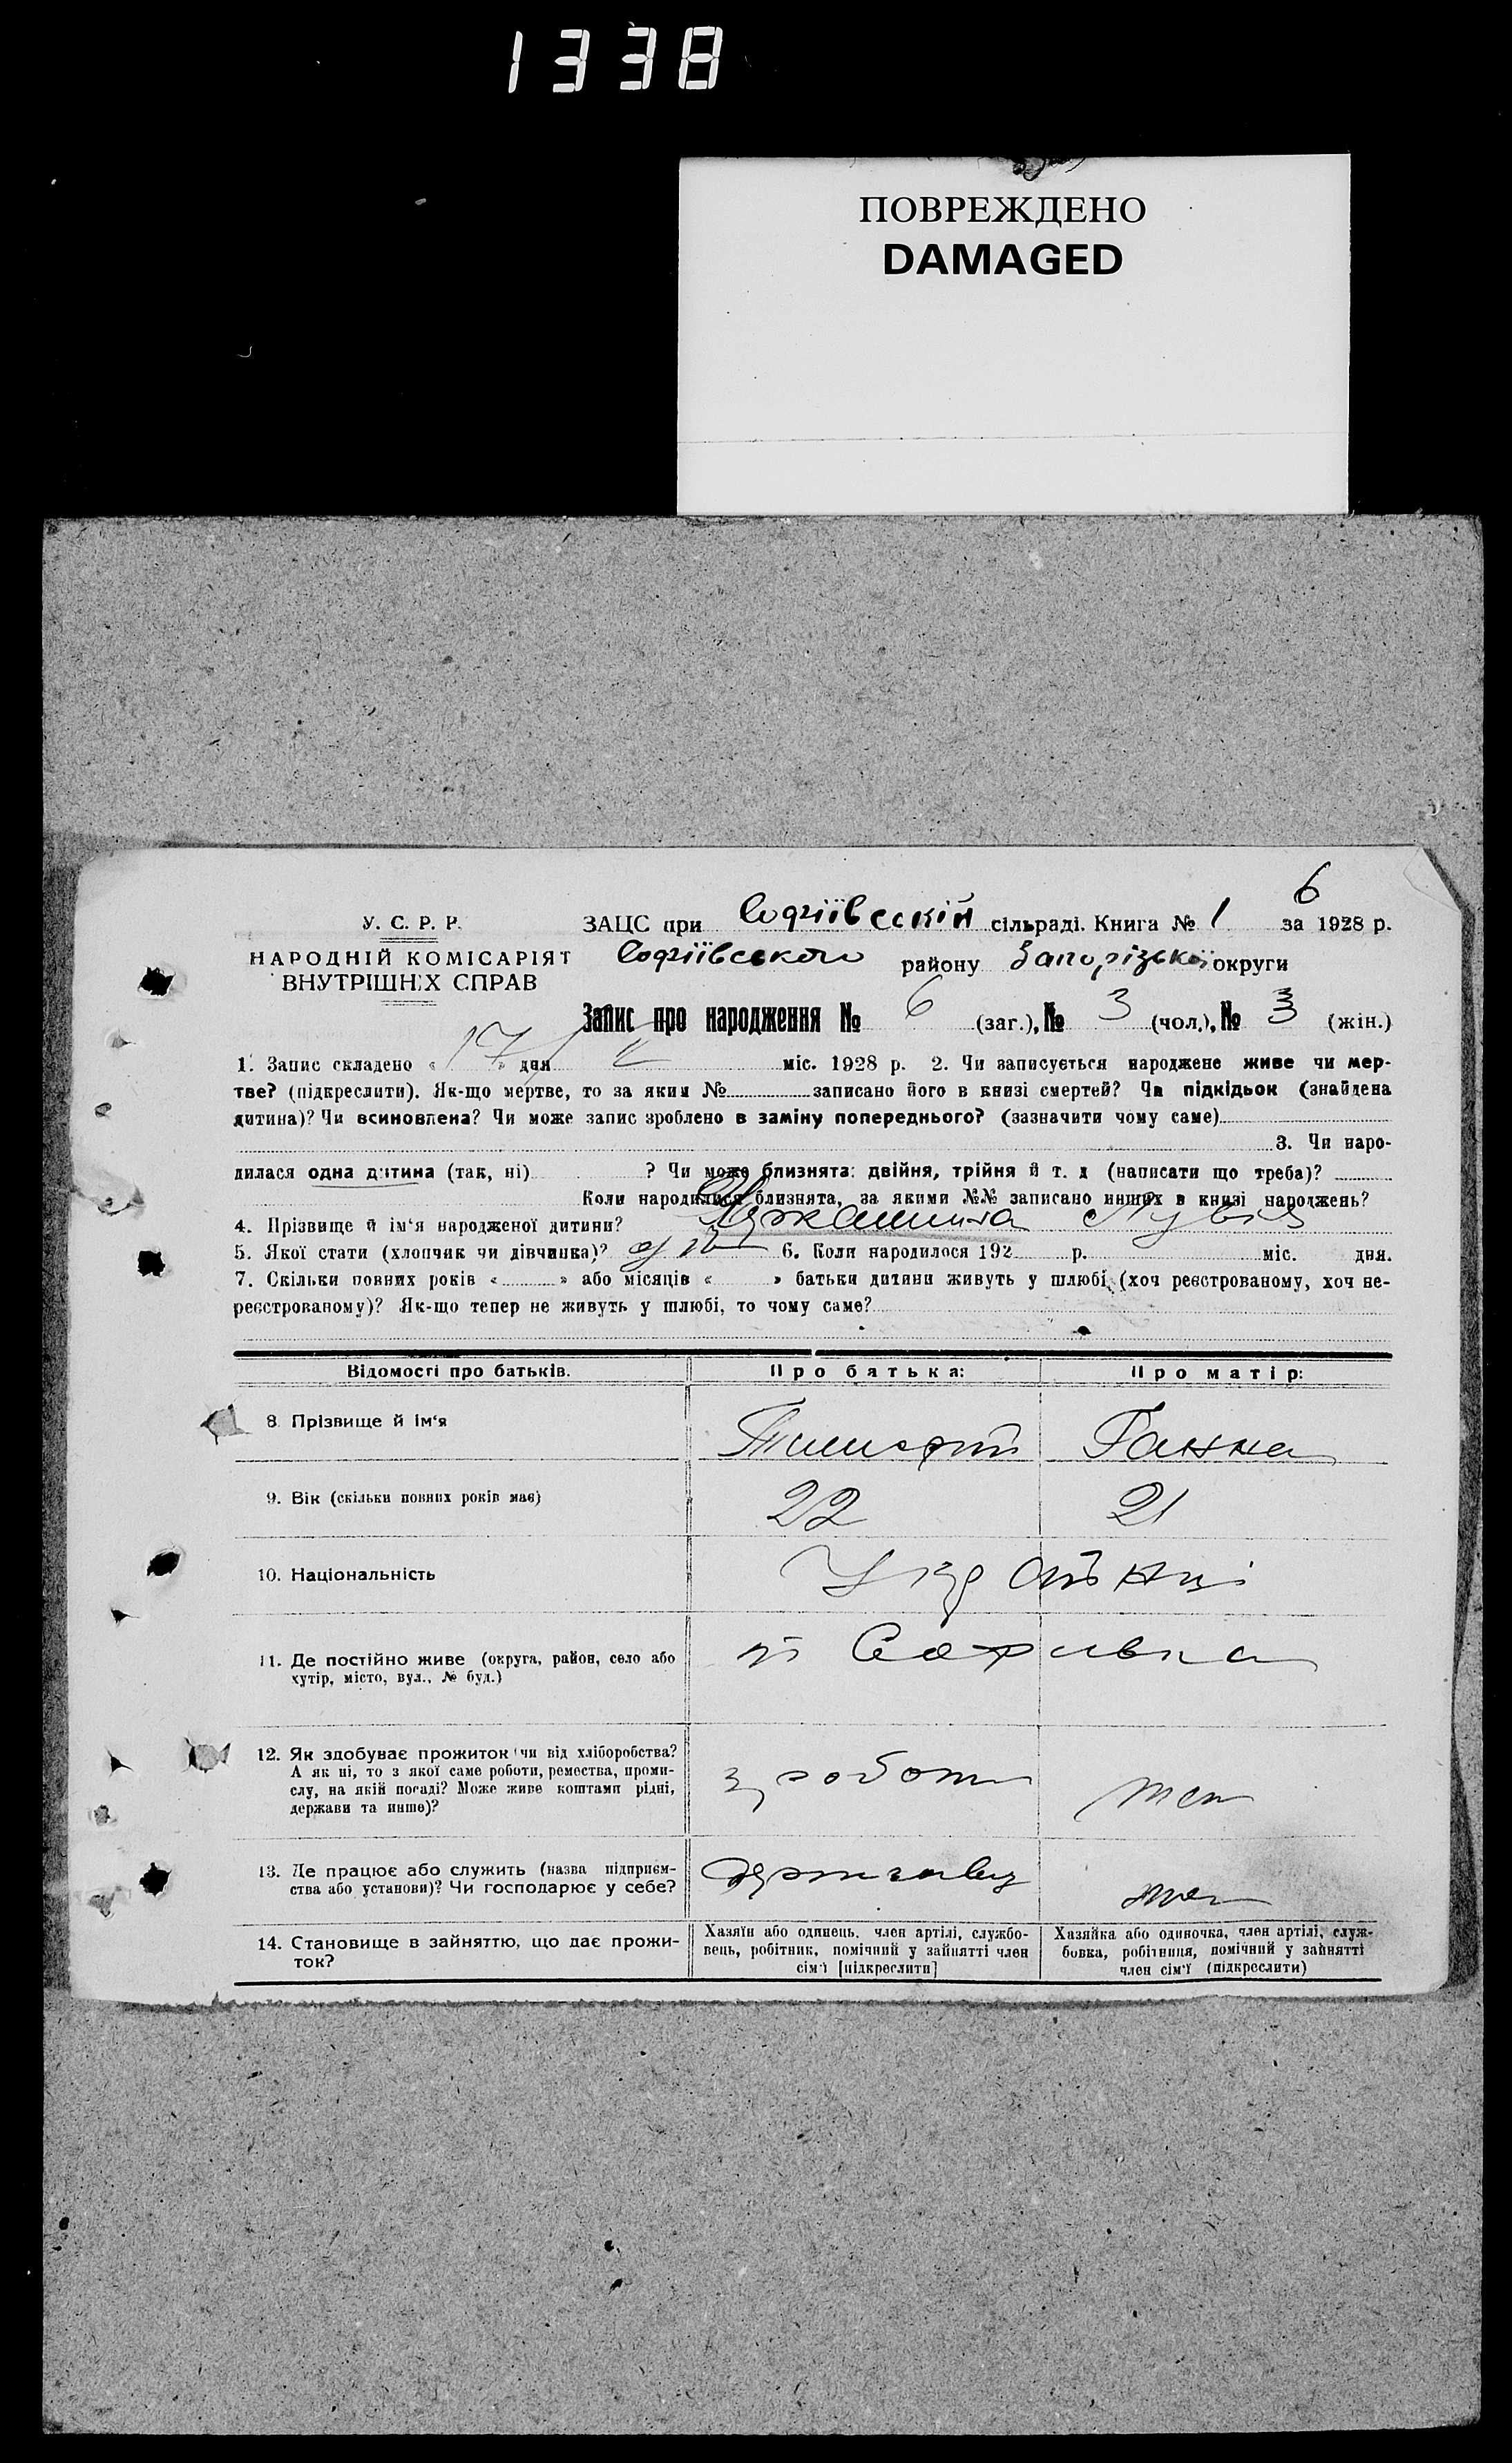 1338
ПОВРЕЖДЕНО
DAMAGED
6
У. С. Р. Р. ЗАЦС при Софіївській сільраді. Книга № 1 за 1928 р.
НАРОДНІЙ КОМІСАРІЯТ Софіївського району Запорізької округи
ВНУТРІШНІХ СПРАВ
Запис про народження № 6 (заг.), № 3 (чол.), № 3 (жін.)
1. Запис складено « 17 » дня міс. 1928 р. 2. Чи записується народжене живе чи мер-
тве? (підкреслити). Як-що мертве, то за яким № записано його в книзі смертей? Чи підкідьок (знайдена
дитина)? Чи всиновлена? Чи може запис зроблено в заміну попереднього? (зазначити чому саме)
3. Чи наро-
дилася одна дитина (так, ні) ? Чи може близнята: двійня, трійня й т. д (написати що треба)?
Коли народилися близнята, за якими №№ записано инших в книзі народжень?
4. Прізвище й ім'я народженої дитини?
5. Якої стати (хлопчяк чи дівчинка)? 6. Коли народилося 192 р. міс. дня.
7. Скільки повних років « » або місяців « » батьки дитини живуть у шлюбі (хоч реєстрованому, хоч не-
реєстрованому)? Як-що тепер не живуть у шлюбі, то чому саме?
Відомості про батьків. Про батька: Про матір:
8 Прізвище й ім'я Тимофій Ганна
9. Вік (скільки повних років має) 22 21
10. Національність Українці
11. Де постійно живе (округа, район, село або
хутір, місто, вул., № буд.)
12. Як здобуває прожиток (чи від хліборобства?
А як ні, то з якої саме роботи, ремества, проми-
слу, на якій посаді? Може живе коштами рідні,
держави та инше)? з роботи
13. Де працює або служить (назва підприєм-
ства або установи)? Чи господарює у себе?
14. Становище в зайняттю, що дає прожи-
ток?
Хазяїн або одинець, член артілі, службо-
вець, робітник, помічний у зайнятті член
сім'ї [підкреслити]
Хазяйка або одиночка, член артілі, служ-
бовка, робітниця, помічний у зайнятті
член сім'ї (підкреслити)